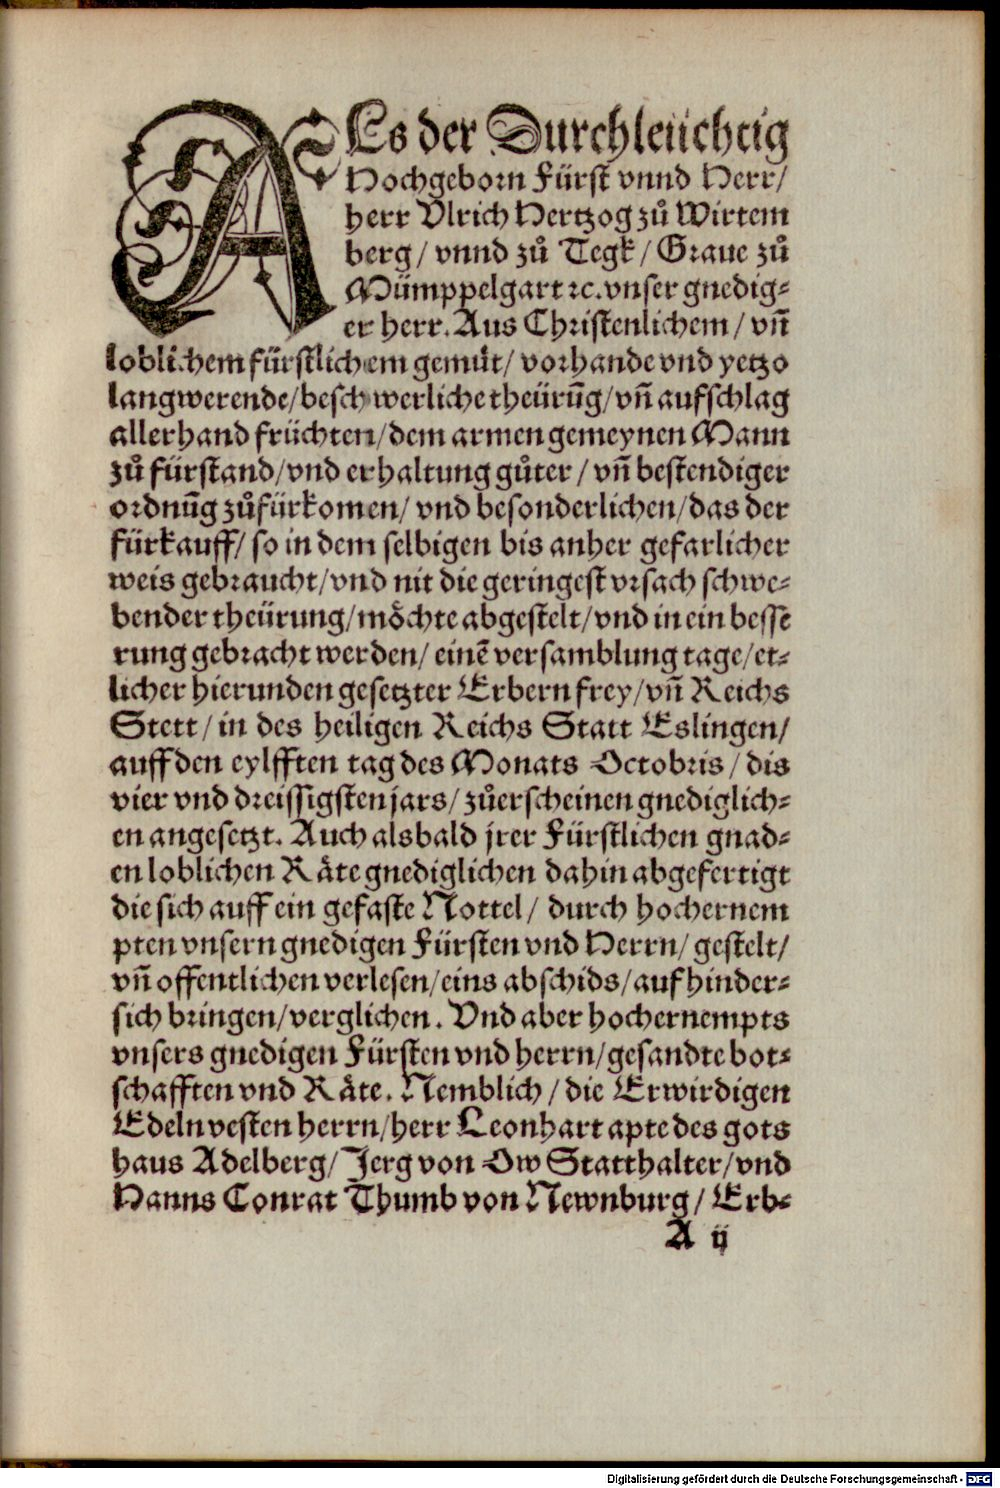 ALs der Durchleüchtig
Hochgeborn Fürst vnnd Herr/
herr Vlrich Hertzog zů Wirtem
berg/ vnnd zů Tegk/ Graue zů
Mümppelgart ꝛc. vnser gnedig-
er herr. Aus Christenlichem/ vn̄
loblichem fürstlichem gemüt/ vorhande vnd yetzo
langwerende/ beschwerliche theürūg/ vn̄ aufschlag
allerhand früchten/ dem armen gemeynen Mann
zů fürstand/ vnd erhaltung gůter/ vn̄ bestendiger
ordnūg zů fürkomen/ vnd besonderlichen/ das der
fürkauff/ so in dem selbigen bis anher gefarlicher
weis gebraucht/ vnd nit die geringest vrsach schwe-
bender theürung/ möchte abgestelt/ vnd in ein besse
rung gebracht werden/ einē versamblung tage/ et-
licher hierunden gesetzter Erbern frey/ vn̄ Reichs
Stett/ in des heiligen Reichs Statt Eslingen/
auff den eylfften tag des Monats Octobris/ dis
vier vnd dreissigsten jars/ zůerscheinen gnediglich-
en angesetzt. Auch alsbald jrer Fürstlichen gnad-
en loblichen Räte gnediglichen dahin abgefertigt
die sich auff ein gefaste Nottel/ durch hochernem
pten vnsern gnedigen Fürsten vnd Herrn/ gestelt/
vn̄ offentlichen verlesen/ eins abschids/ auf hinder-
sich bringen/ verglichen. Vnd aber hochernempts
vnsers gnedigen Fürsten vnd herrn/ gesandte bot-
schafften vnd Räte. Nemblich/ die Erwirdigen
Edeln vesten herrn/ herr Leonhart apte des gots
haus Adelberg/ Jerg von Ow Statthalter/ vnd
Hanns Conrat Thumb von Newnburg/ Erb-
A ij
Digitalisierung gefördert durch die Deutsche Forschungsgemeinschaft - DFG